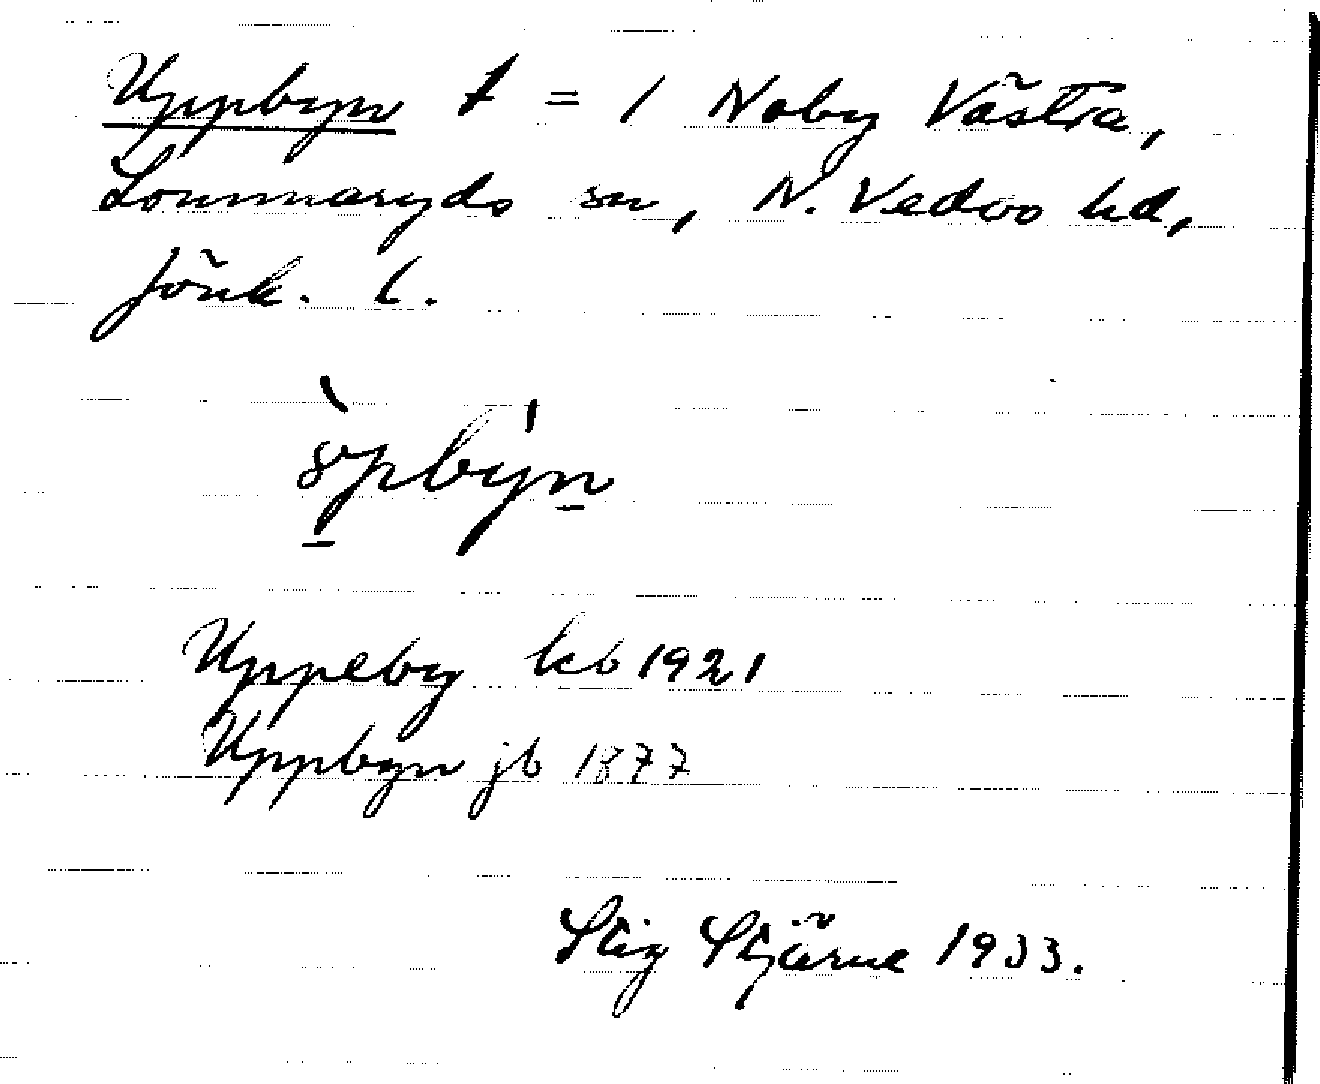 Uppbyn t = 1 Noby Västra,
Lommaryds sn, N. Vedbo hd,
Jönk. l.
Uppeby kb 1921
Uppbyn jb 1877
Stig Stjärne 1933.